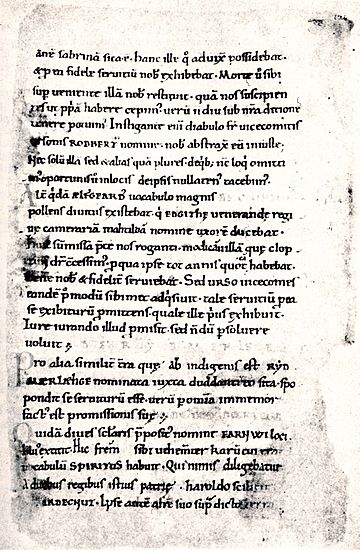 ante sabrinā sita e. hanc ille q̄ aduix̄ possidebat.
& p ea fidele seruitiū nob̄ exhibebat. Morte ū sibi
sup uenente illā nob̄ restituit. quā nos suscipien
tes ut ppā habere cepim'. uerū n̄ diu sub nr̄a ditione
tenere potuim'. Instigante eni diabolo fr̄ vicecomitis
ursonis RODBERT' nomine. nob̄ abstraxit eā iniuste.
Nec solū illā sed & alias quā plures. de q̄b; nc̄ loq̄ omitti
m' oportunis in locis de ipsis nullaten' tacebim'.
Alt' q̄dā ÆLFǷARD' uocabulo magnis
pollens diuitiis existebat. q̄ EDGITHE uenerande regi
ne camerariā mahtildā nomine uxorē ducebat.
Huic sūmissa p̄ce nos roganti. modicā uillā. que clop
dr̄ c̄cessim'. p qua ipse tot annis quot habebat.
bene nob̄ & fidelit̄ seruiebat. Sed URSO uicecomes
eandē p' modū sibimet adq̄siuit. tale seruitiū p ea
se exhibiturū pmittens quale ille p'us exhibuit.
Iure iurando illud pmisit. sed n̄ dū psoluere
uoluit.
Pro alia similit̄ t̄ra que ab indigenis est RYD
MÆRLÆHGE nominata iuxta sita. spo
pondit se seruiturū esse. uerū p om̄ia inmemor
fact' est promissionis sue.
Quidā diues sclaris p̄poste' nomine EARNǷI loci
hui' extitit. Hic frem̄ sibi uehemēt̄ karū
uocabulū SPIRITUS habuit. Qui nimis diligebatur
a duobus regibus istius patrie. haroldo scilicet
& HARDECNUT. Ipse aūte a fr̄e suo sup' dicto